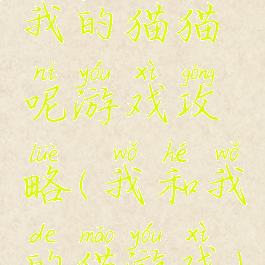 我的猫猫
ní yóu xì gōng
呢游戏攻
lüè wǒ hé wǒ
略(我和我
de māo yóu xì
的猫游戏)